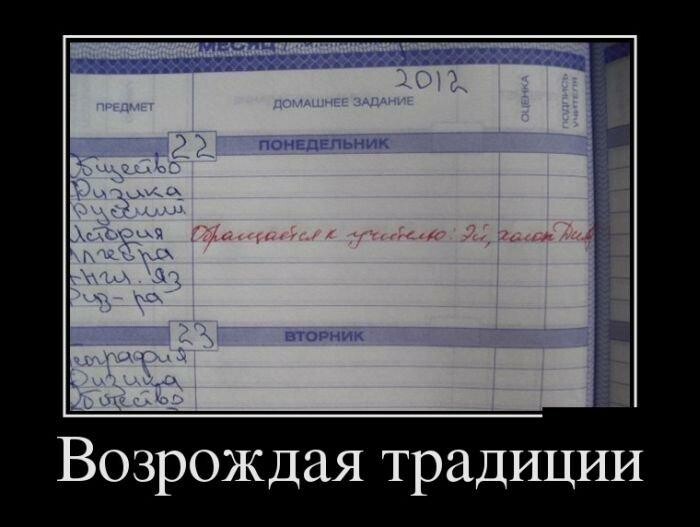 МЕСЯЦ
2012
ПРЕДМЕТ ДОМАШНЕЕ ЗАДАНИЕ ОЦЕНКА ПОДПИСЬ УЧИТЕЛЯ
22 ПОНЕДЕЛЬНИК
Общество
Физика
Русский
История Обращается к учителю: Эй, холоп
Алгебра
Англ. Яз
Физ-ра
23 ВТОРНИК
География
Физика
Общество
Возрождая традиции